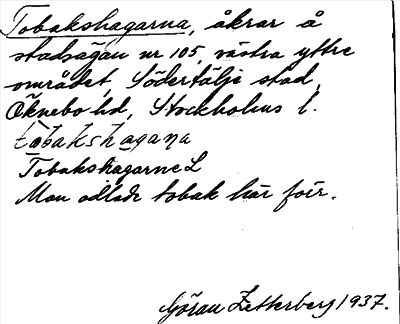 Tobakshagarna, åkrar å
stadsägan nr 105, västra yttre
området, Södertälje stad,
Öknebo hd, Stockholms l.
tobakshagana
Tobakshagarne L
Man odlade tobak här förr.
Göran Zetterberg 1937.